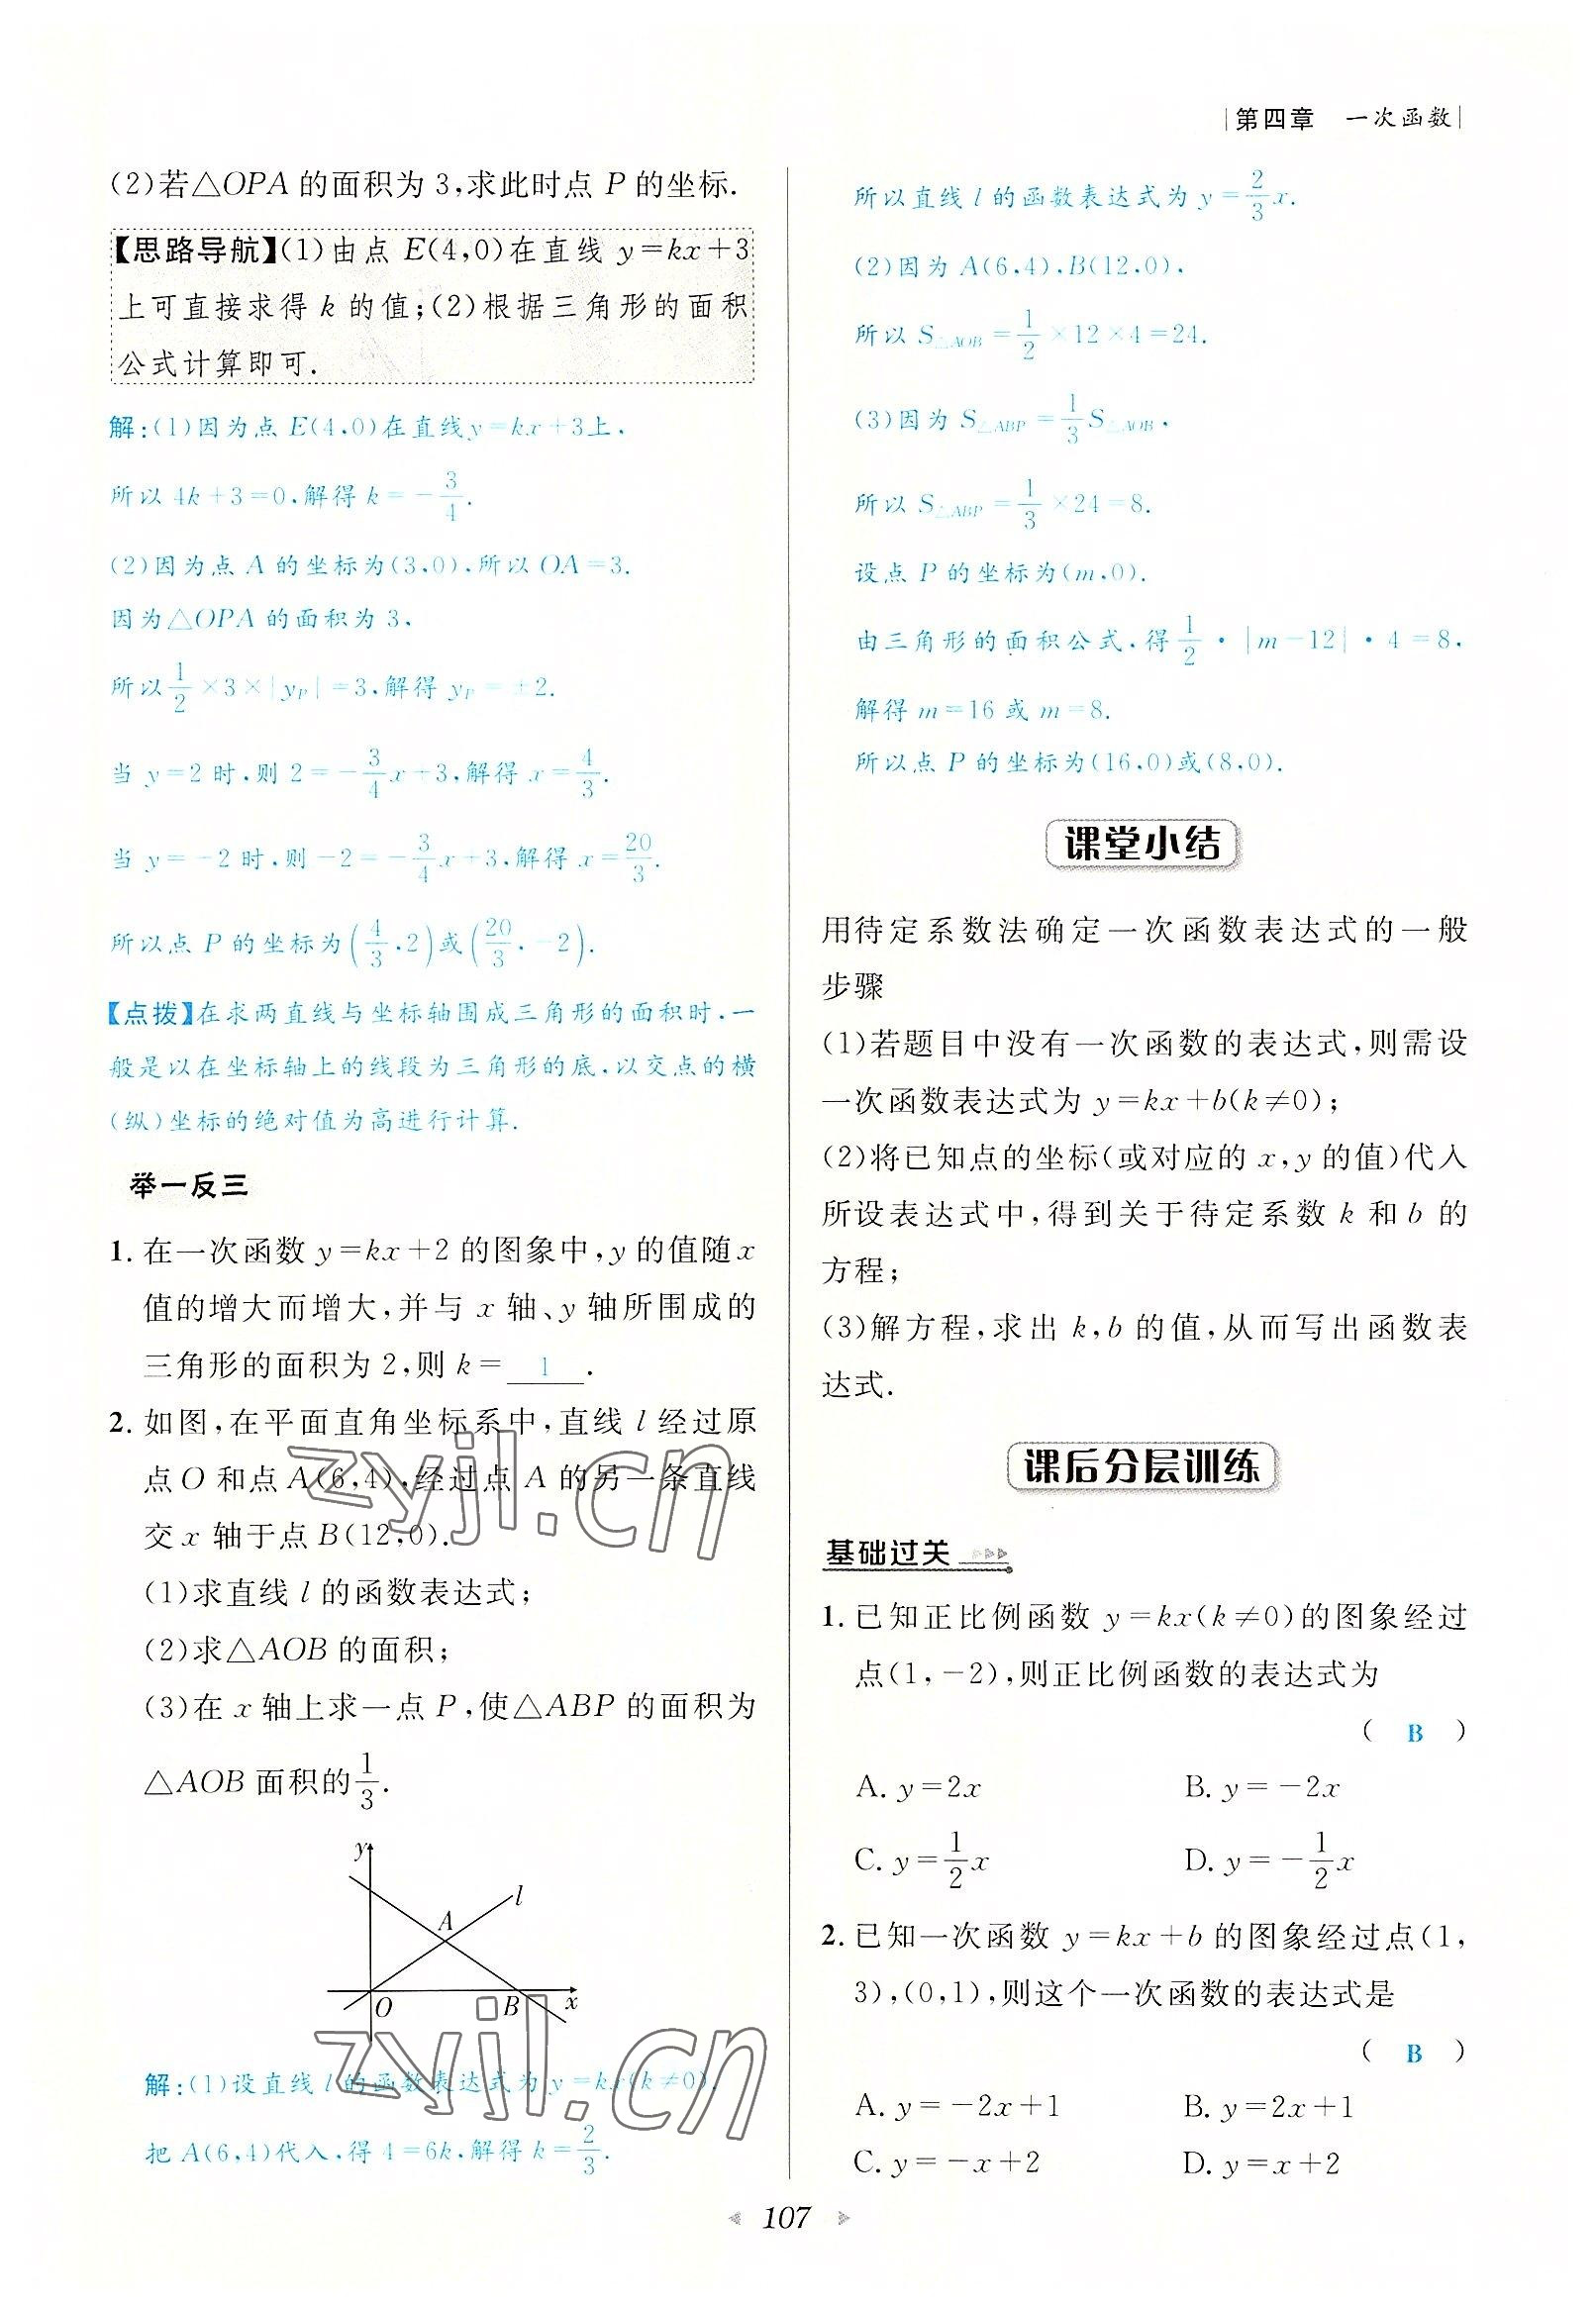 第四章 一次函数
(2)若△OPA的面积为3,求此时点P的坐标.
【思路导航】(1)由点E(4,0)在直线y=kx+3
上可直接求得k的值;(2)根据三角形的面积
公式计算即可.
解:(1)因为点E(4,0)在直线y=kx+3上,
所以4k+3=0,解得k=-3/4.
(2)因为点A的坐标为(3,0),所以OA=3.
因为△OPA的面积为3,
所以1/2×3×|y_P|=3,解得y_P=±2.
当y=2时,则2=-3/4x+3,解得x=4/3.
当y=-2时,则-2=-3/4x+3,解得x=20/3.
所以点P的坐标为(4/3,2)或(20/3,-2).
【点拨】在求两直线与坐标轴围成三角形的面积时,一
般是以在坐标轴上的线段为三角形的底,以交点的横
(纵)坐标的绝对值为高进行计算.
举一反三
1. 在一次函数y=kx+2的图象中,y的值随x
值的增大而增大,并与x轴、y轴所围成的
三角形的面积为2,则k= 1 .
2. 如图,在平面直角坐标系中,直线l经过原
点O和点A(6,4),经过点A的另一条直线
交x轴于点B(12,0).
(1)求直线l的函数表达式;
(2)求△AOB的面积;
(3)在x轴上求一点P,使△ABP的面积为
△AOB面积的1/3.
y
l
A
O
B
x
解:(1)设直线l的函数表达式为y=kx(k≠0).
把A(6,4)代入,得4=6k,解得k=2/3.
所以直线l的函数表达式为y=2/3x.
(2)因为A(6,4),B(12,0),
所以S△AOB=1/2×12×4=24.
(3)因为S△ABP=1/3S△AOB,
所以S△ABP=1/3×24=8.
设点P的坐标为(m,0).
由三角形的面积公式,得1/2·|m-12|·4=8,
解得m=16或m=8.
所以点P的坐标为(16,0)或(8,0).
课堂小结
用待定系数法确定一次函数表达式的一般
步骤
(1)若题目中没有一次函数的表达式,则需设
一次函数表达式为y=kx+b(k≠0);
(2)将已知点的坐标(或对应的x,y的值)代入
所设表达式中,得到关于待定系数k和b的
方程;
(3)解方程,求出k,b的值,从而写出函数表
达式.
课后分层训练
基础过关
1. 已知正比例函数y=kx(k≠0)的图象经过
点(1,-2),则正比例函数的表达式为
( B )
A. y=2x B. y=-2x
C. y=1/2x D. y=-1/2x
2. 已知一次函数y=kx+b的图象经过点(1,
3),(0,1),则这个一次函数的表达式是
( B )
A. y=-2x+1 B. y=2x+1
C. y=-x+2 D. y=x+2
107
zyjl.cn
zyjl.cn